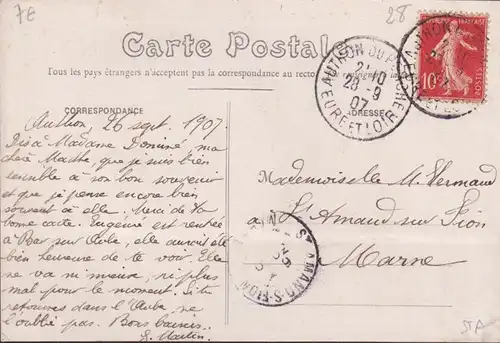 7E
28
Carte Postale
Tous les pays étrangers n'acceptent pas la correspondance au recto
AUTHON DU PERCHE
21 10
28 -9
07
EURE ET LOIR
10
POSTES
CORRESPONDANCE
ADRESSE
Authon, 26 sept. 1907.
Dis à Madame Dominé, ma
chère Marthe, que je suis bien
sensible à son bon souvenir
et que je pense encore bien
souvent à elle. Merci de ta
bonne carte. Eugénie est rentrée
à Bar sur Aube, elle aurait été
bien heureuse de te voir. Elle
ne va ni mieux, ni plus
mal pour le moment. Si tu
retournes dans l'Aube, ne
l'oublie pas. Bons baisers.
E. Martin.
Mademoiselle M. Vermand
à St Amand sur Fion
Marne
ST AMAND-S-FION
STA